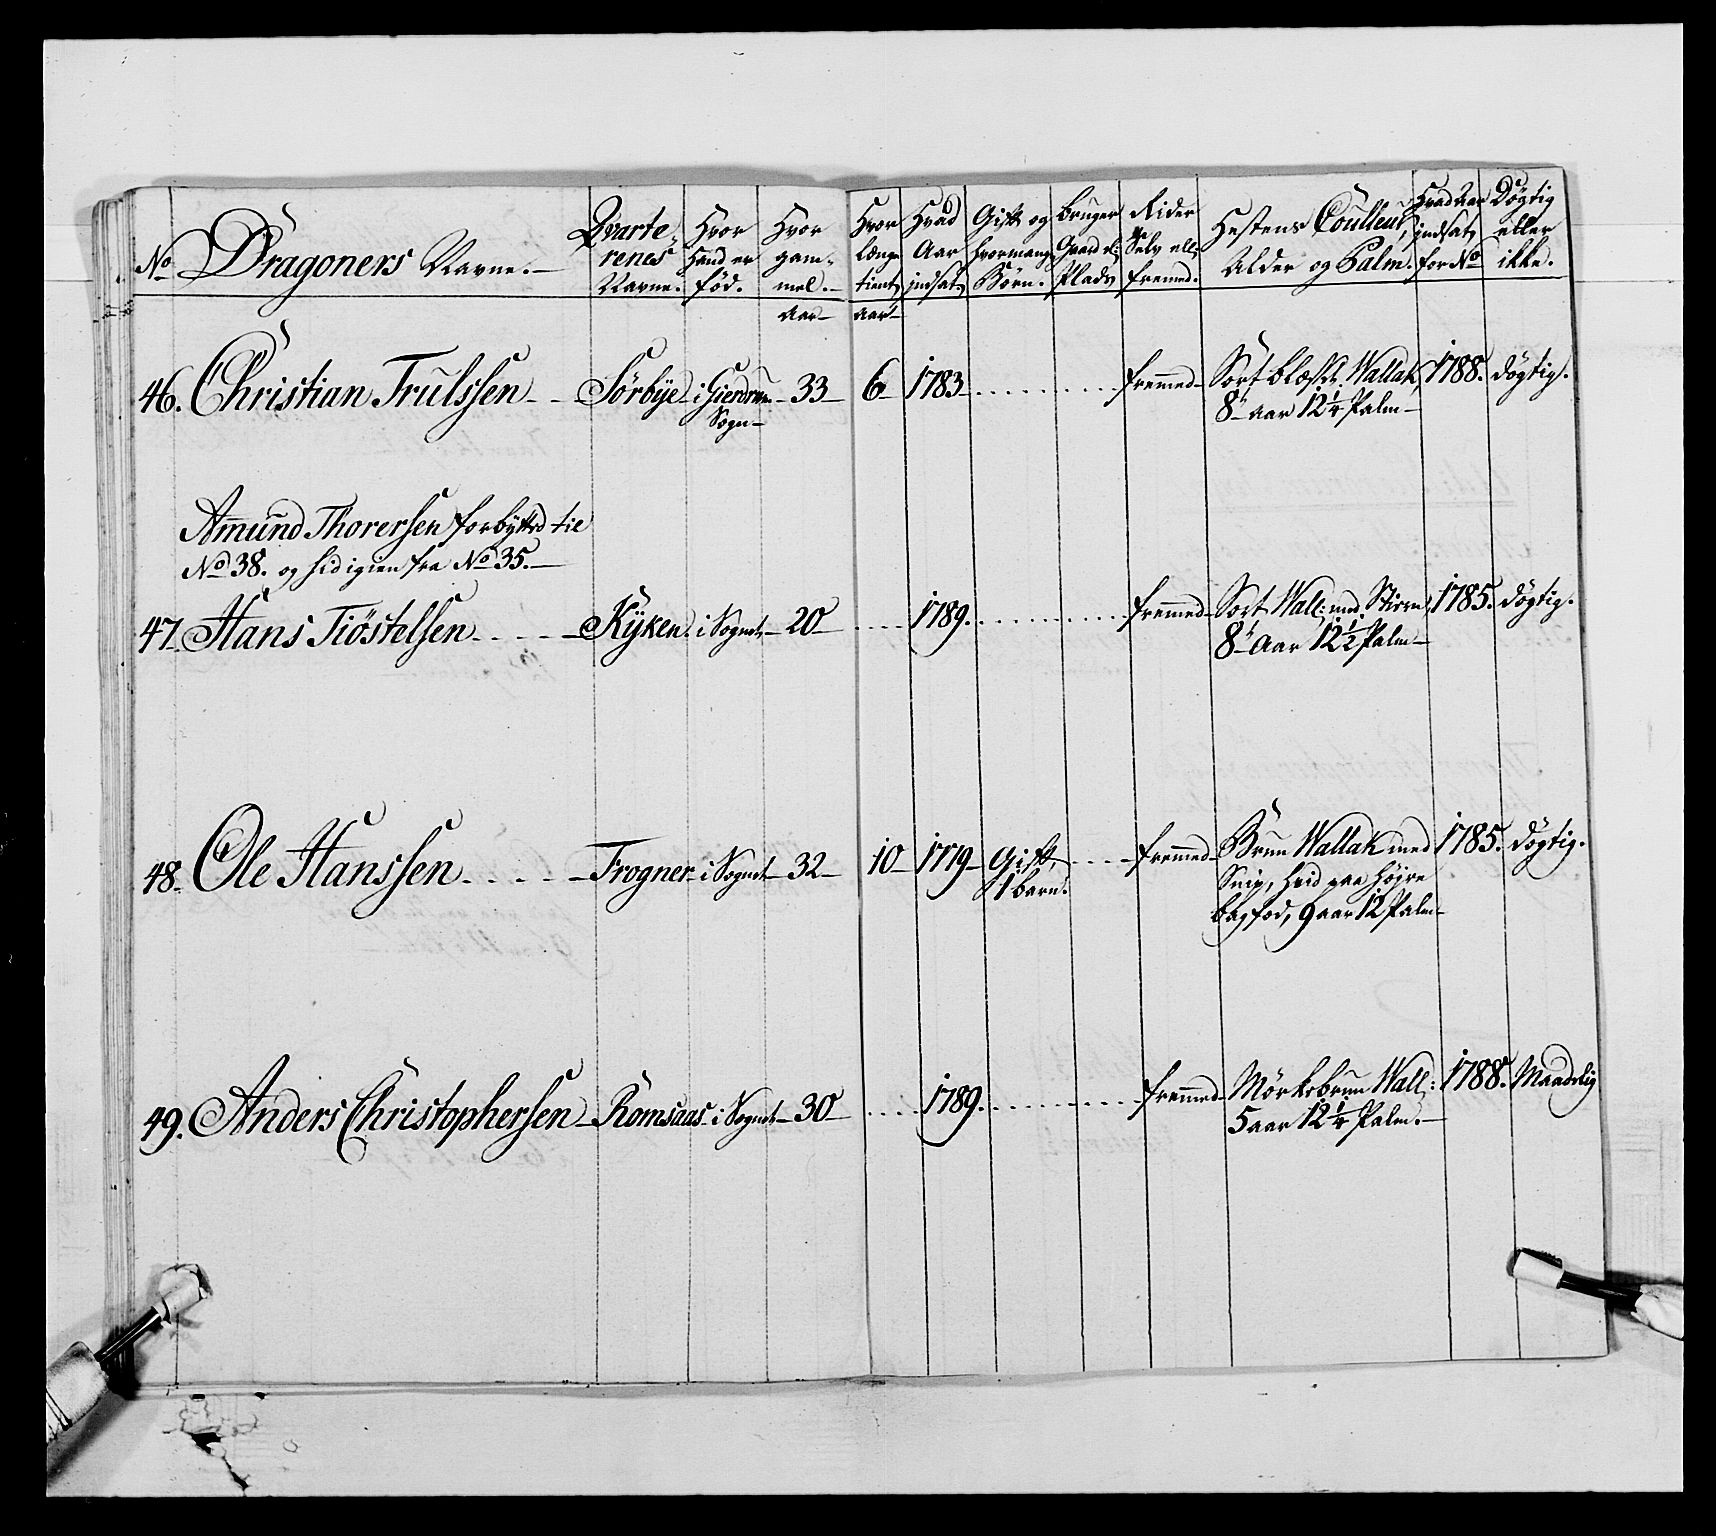 No Dragoners Navne.
Qvarte-
renes
Navne.
Hvor
Hand er
fød.
Hvor
gam-
mel.
Aar
Hvor
længe
tient
aar
Hvad
Aar
indsat
Gift og
hvormange
Børn.
bruger
Gaard el:
Plads
Rider
Selv ell:
fremed.
Hestens Couleur,
Alder og Palm.
Hvad Aar
indsat
for No
Døgtig
eller
ikke.
46. Christian Trulssen - - Sørbye i Gierdrum 33 6 1783 fremmed Sort blæset Wallak, 1788. døgtig.
Sogn 8 aar 12 1/4 Palm
Amund Thorersen forbytted til
No 38. og hid igien fra No 35.
47. Hans Tiøstelsen - - - Kyken i Sognet 20 1789. fremmed Sort Wall: med Stiern, 1785. døgtig.
8 Aar 12 1/2 Palm
48. Ole Hanssen - - - Frogner i Sognet 32 10 1779 Gift fremmed Brun Wallak med 1785. døgtig.
1 barn. Snip, hvid paa højre
bagfod, 9 aar 12 Palm
49. Anders Christophersen Romsaas i Sognet 30 1789. fremmed Mørkebrun Wall: 1788. Maadelig
5 aar 12 1/4 Palm.